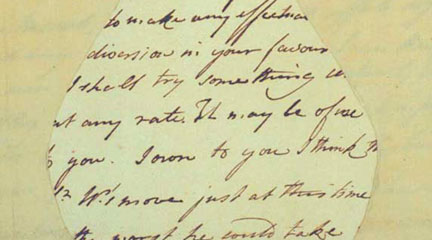 to make any effectua
diversion in your favour
I shall try something ce
at any rate. It may be of use
to you. I own to you I think
Sr W's move just at this time
the worst he could take